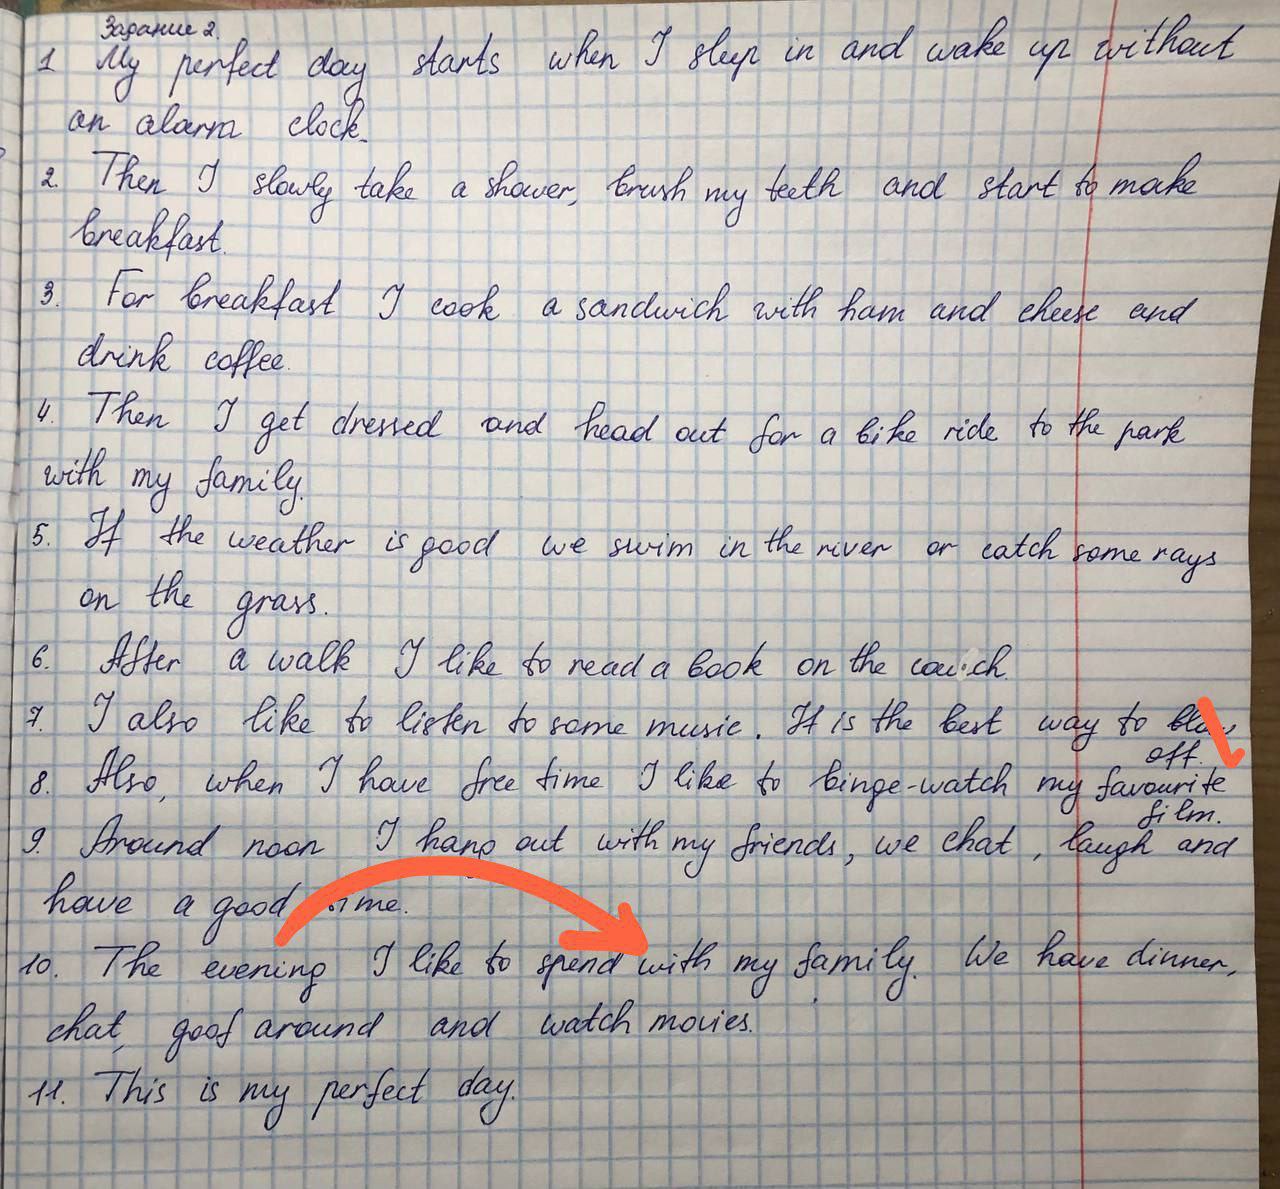 Задание 2.
1 My perfect day starts when I sleep in and wake up without
an alarm clock.
2. Then I slowly take a shower, brush my teeth and start to make
breakfast.
3. For breakfast I cook a sandwich with ham and cheese and
drink coffee.
4. Then I get dressed and head out for a bike ride to the park
with my family.
5. If the weather is good we swim in the river or catch some rays
on the grass.
6. After a walk I like to read a book on the couch.
7. I also like to listen to some music. It is the best way to
off.
8. Also, when I have free time I like to binge-watch my favourite
film.
9. Around noon I hang out with my friends, we chat, laugh and
have a good time.
10. The evening I like to spend with my family. We have dinner,
chat, goof around and watch movies.
11. This is my perfect day.